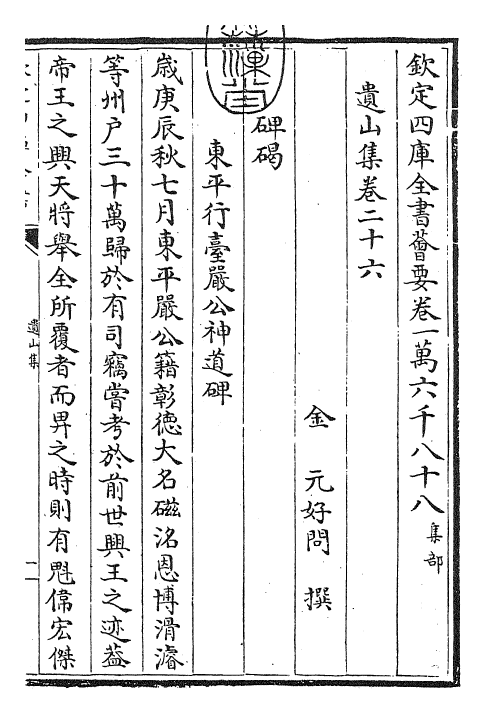 欽定四庫全書薈要卷一萬六千八十八 集部
遺山集卷二十六
金 元好問 撰
碑碣
東平行臺嚴公神道碑
歲庚辰秋七月東平嚴公籍彰徳大名磁洺恩博滑濬
等州户三十萬歸於有司竊嘗考於前世興王之迹葢
帝王之興天將舉全所覆者而畀之時則有魁偉宏傑
遺山集
一